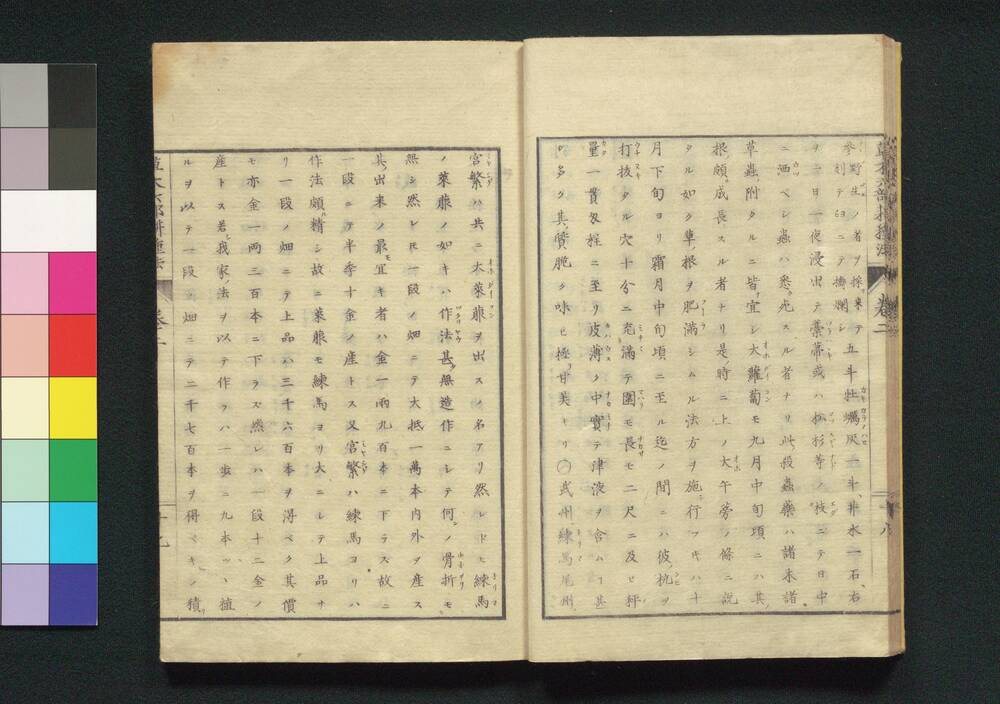 草木六部耕種法 卷二
參野生ノ者ヲ採來テ五斗牡蠣灰一斗、井水一石、右
剉テ臼ニテ擣爛シ
ヲ二日一夜浸出テ藁箒或ハ松杉等ノ枝ニテ日中
ニ洒ベシ蟲ハ悉ク死スル者ナリ此殺蟲藥ハ諸木諸
草蟲ノ附タルニ皆宜シ大蘿蔔モ九月中旬頃ニハ其
根頗成長スル者ナリ是時ニ上ノ大牛旁ノ條ニ説
タル如ク草ノ根ヲ肥滿シムル法方ヲ施シ行フヰハ十
月下旬ヨリ霜月中旬頃ニ至ル迄ノ間ニハ彼杭ヲ
打拔タル穴十分ニ充滿テ圍モ長モ二尺ニ及ヒ秤
量一貫目以上ニ至リ皮薄ク中實テ津液ヲ含ムヿ甚
タ多ク其質脆ク味ヒ極テ甘美ナリ○武州練馬尾州
十八
宮繁ハ共ニ大萊菔ヲ出スノ名アリ然レドモ練馬
ノ萊菔ノ如キハ作法甚タ無造作ニシテ何ノ骨折モ
無シ然レモ一段ノ畑ニテ大抵一萬本内外ヲ産ス
其出來ノ最モ宜キ者ハ金一兩九百本ニ下ラス故ニ
一段ニテ半季十金ノ産トス又宮繁ハ練馬ヨリハ
作法頗ル精シ故ニ萊菔モ練馬ヨリ大ニシテ上品ナ
リ一段ノ畑ニテ上品ハ三千六百本ヲ得ベク其價
モ亦金一兩三百本ニ下ラズ然レハ一段十二金ノ
産トス若シ我家ノ法ヲ以テ作ラハ一歩ニ九本ツヽ植
ルヲ以テ一段ノ畑ニテ二千七百本ヲ得ベキノ積リ
草木六部耕種法 卷二
十九